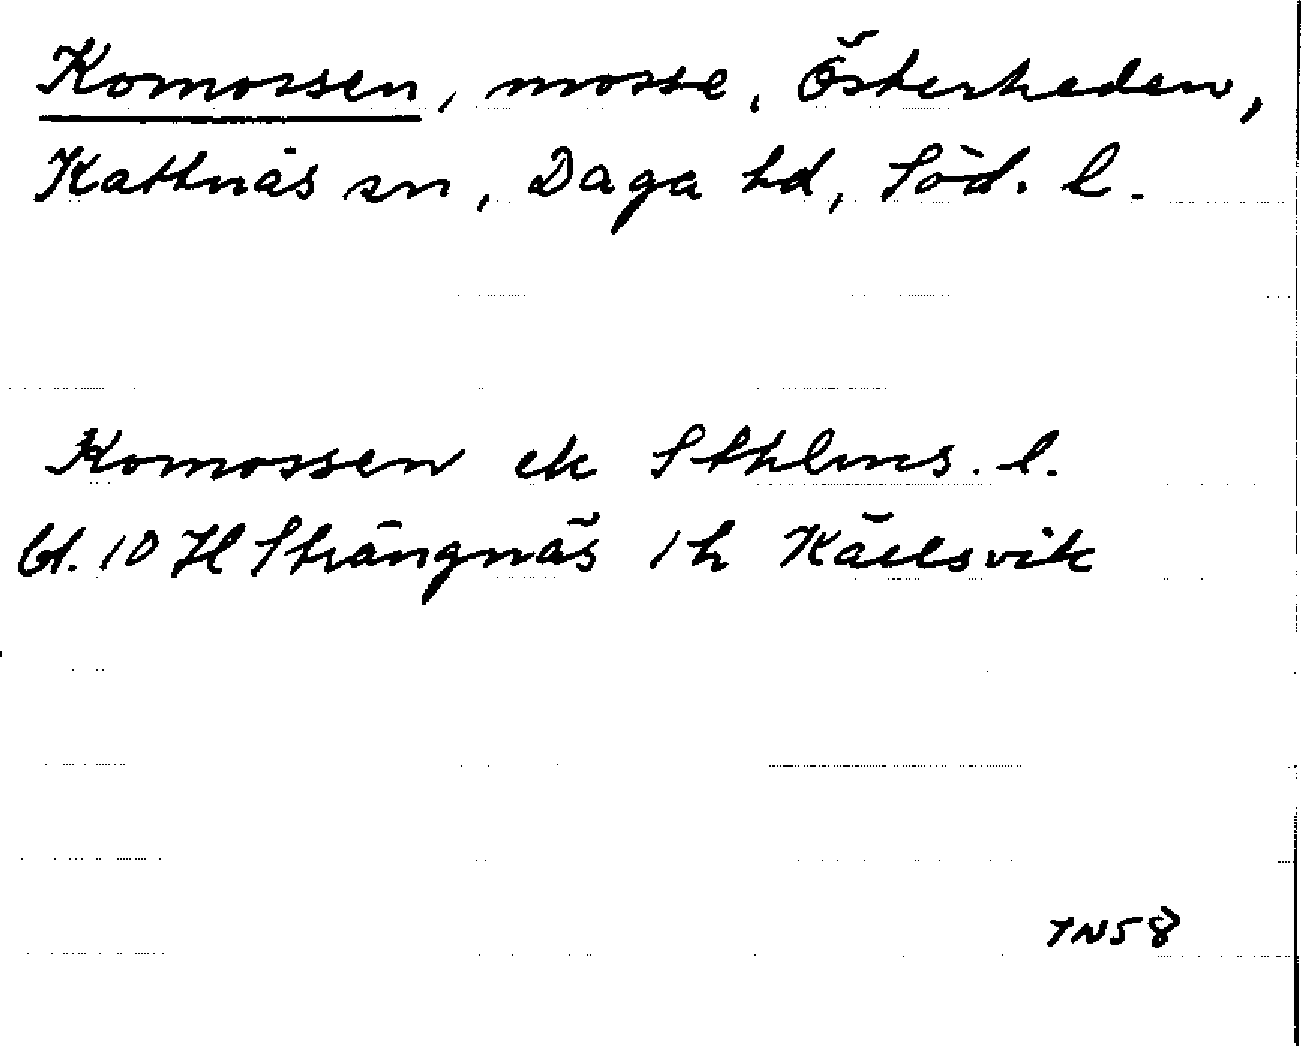 Komossen, mosse, Österheden,
Kattnäs sn, Daga hd, Söd. l.
Komossen ek Sthlms. l.
bl. 10 H Strängnäs 1 h Källsvik
TN58